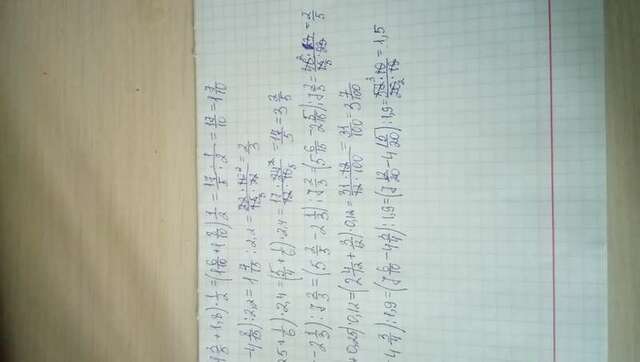 1 3/5 + 1,8) · 1/2 = (1 6/10 + 1 8/10) 1/2 = 17/5 · 1/2 = 17/10 = 1 7/10
- 4 8/15) : 2,2 = 1 7/15 : 2,2 = 22 · 10 2 / 15 3 · 22 = 2/3
25 + 1/6) · 2,4 = (5/4 + 1/6) · 2,4 = 17/12 · 24 2/10 5 = 17/5 = 3 2/5
- 2 1/3) : 7 2/3 = (5 2/5 - 2 1/3) : 7 2/3 = (5 6/15 - 2 5/15) : 7 2/3 = = 2/5
+ 0,25) · 0,12 = (2 4/12 + 3/12) · 0,12 = 31/12 · 12/100 = 31/100 = 3 7/100
- 4 3/4) : 1,9 = (7 6/10 - 4 3/4) : 1,9 = (7 12/20 - 4 15/20) : 1,9 = = 1,5